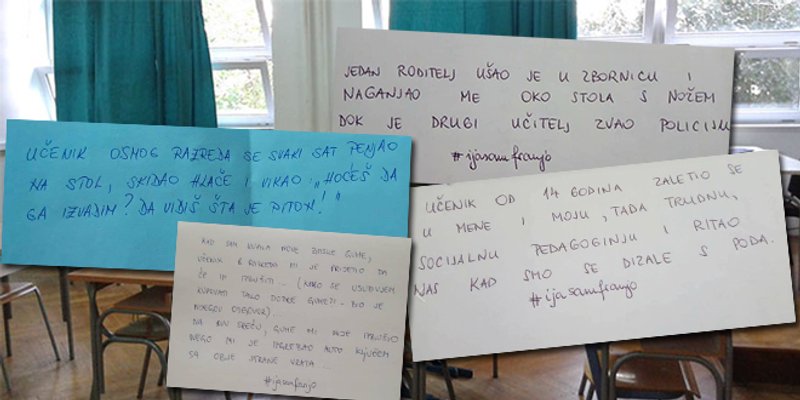 JEDAN RODITELJ UŠAO JE U ZBORNICU I
NAGANJAO ME OKO STOLA S NOŽEM
DOK JE DRUGI UČITELJ ZVAO POLICIJU
#ijasamfranjo
UČENIK OSMOG RAZREDA SE SVAKI SAT PENJAO
NA STOL, SKIDAO HLAČE I VIKAO: „HOĆEŠ DA
GA IZVADIM? DA VIDIŠ ŠTA JE PITON!"
UČENIK OD 14 GODINA ZALETIO SE
U MENE I MOJU, TADA TRUDNU,
SOCIJALNU PEDAGOGINJU I RITAO
NAS KAD SMO SE DIZALE S PODA.
#ijasamfranjo
KAD SAM KUPILA NOVE ZIMSKE GUME,
UČENIK 8. RAZREDA MI JE PRIJETIO DA
ĆE IH IZBUŠITI... (KAKO SE USUĐUJEM
KUPOVATI TAKO DOBRE GUME?! - BIO JE
NJEGOV ODGOVOR)...
NA SVU SREĆU, GUME MI NIJE IZBUŠIO
NEGO MI JE IZGREBAO AUTO KLJUČEM
SA OBJE STRANE VRATA...
#ijasamfranjo